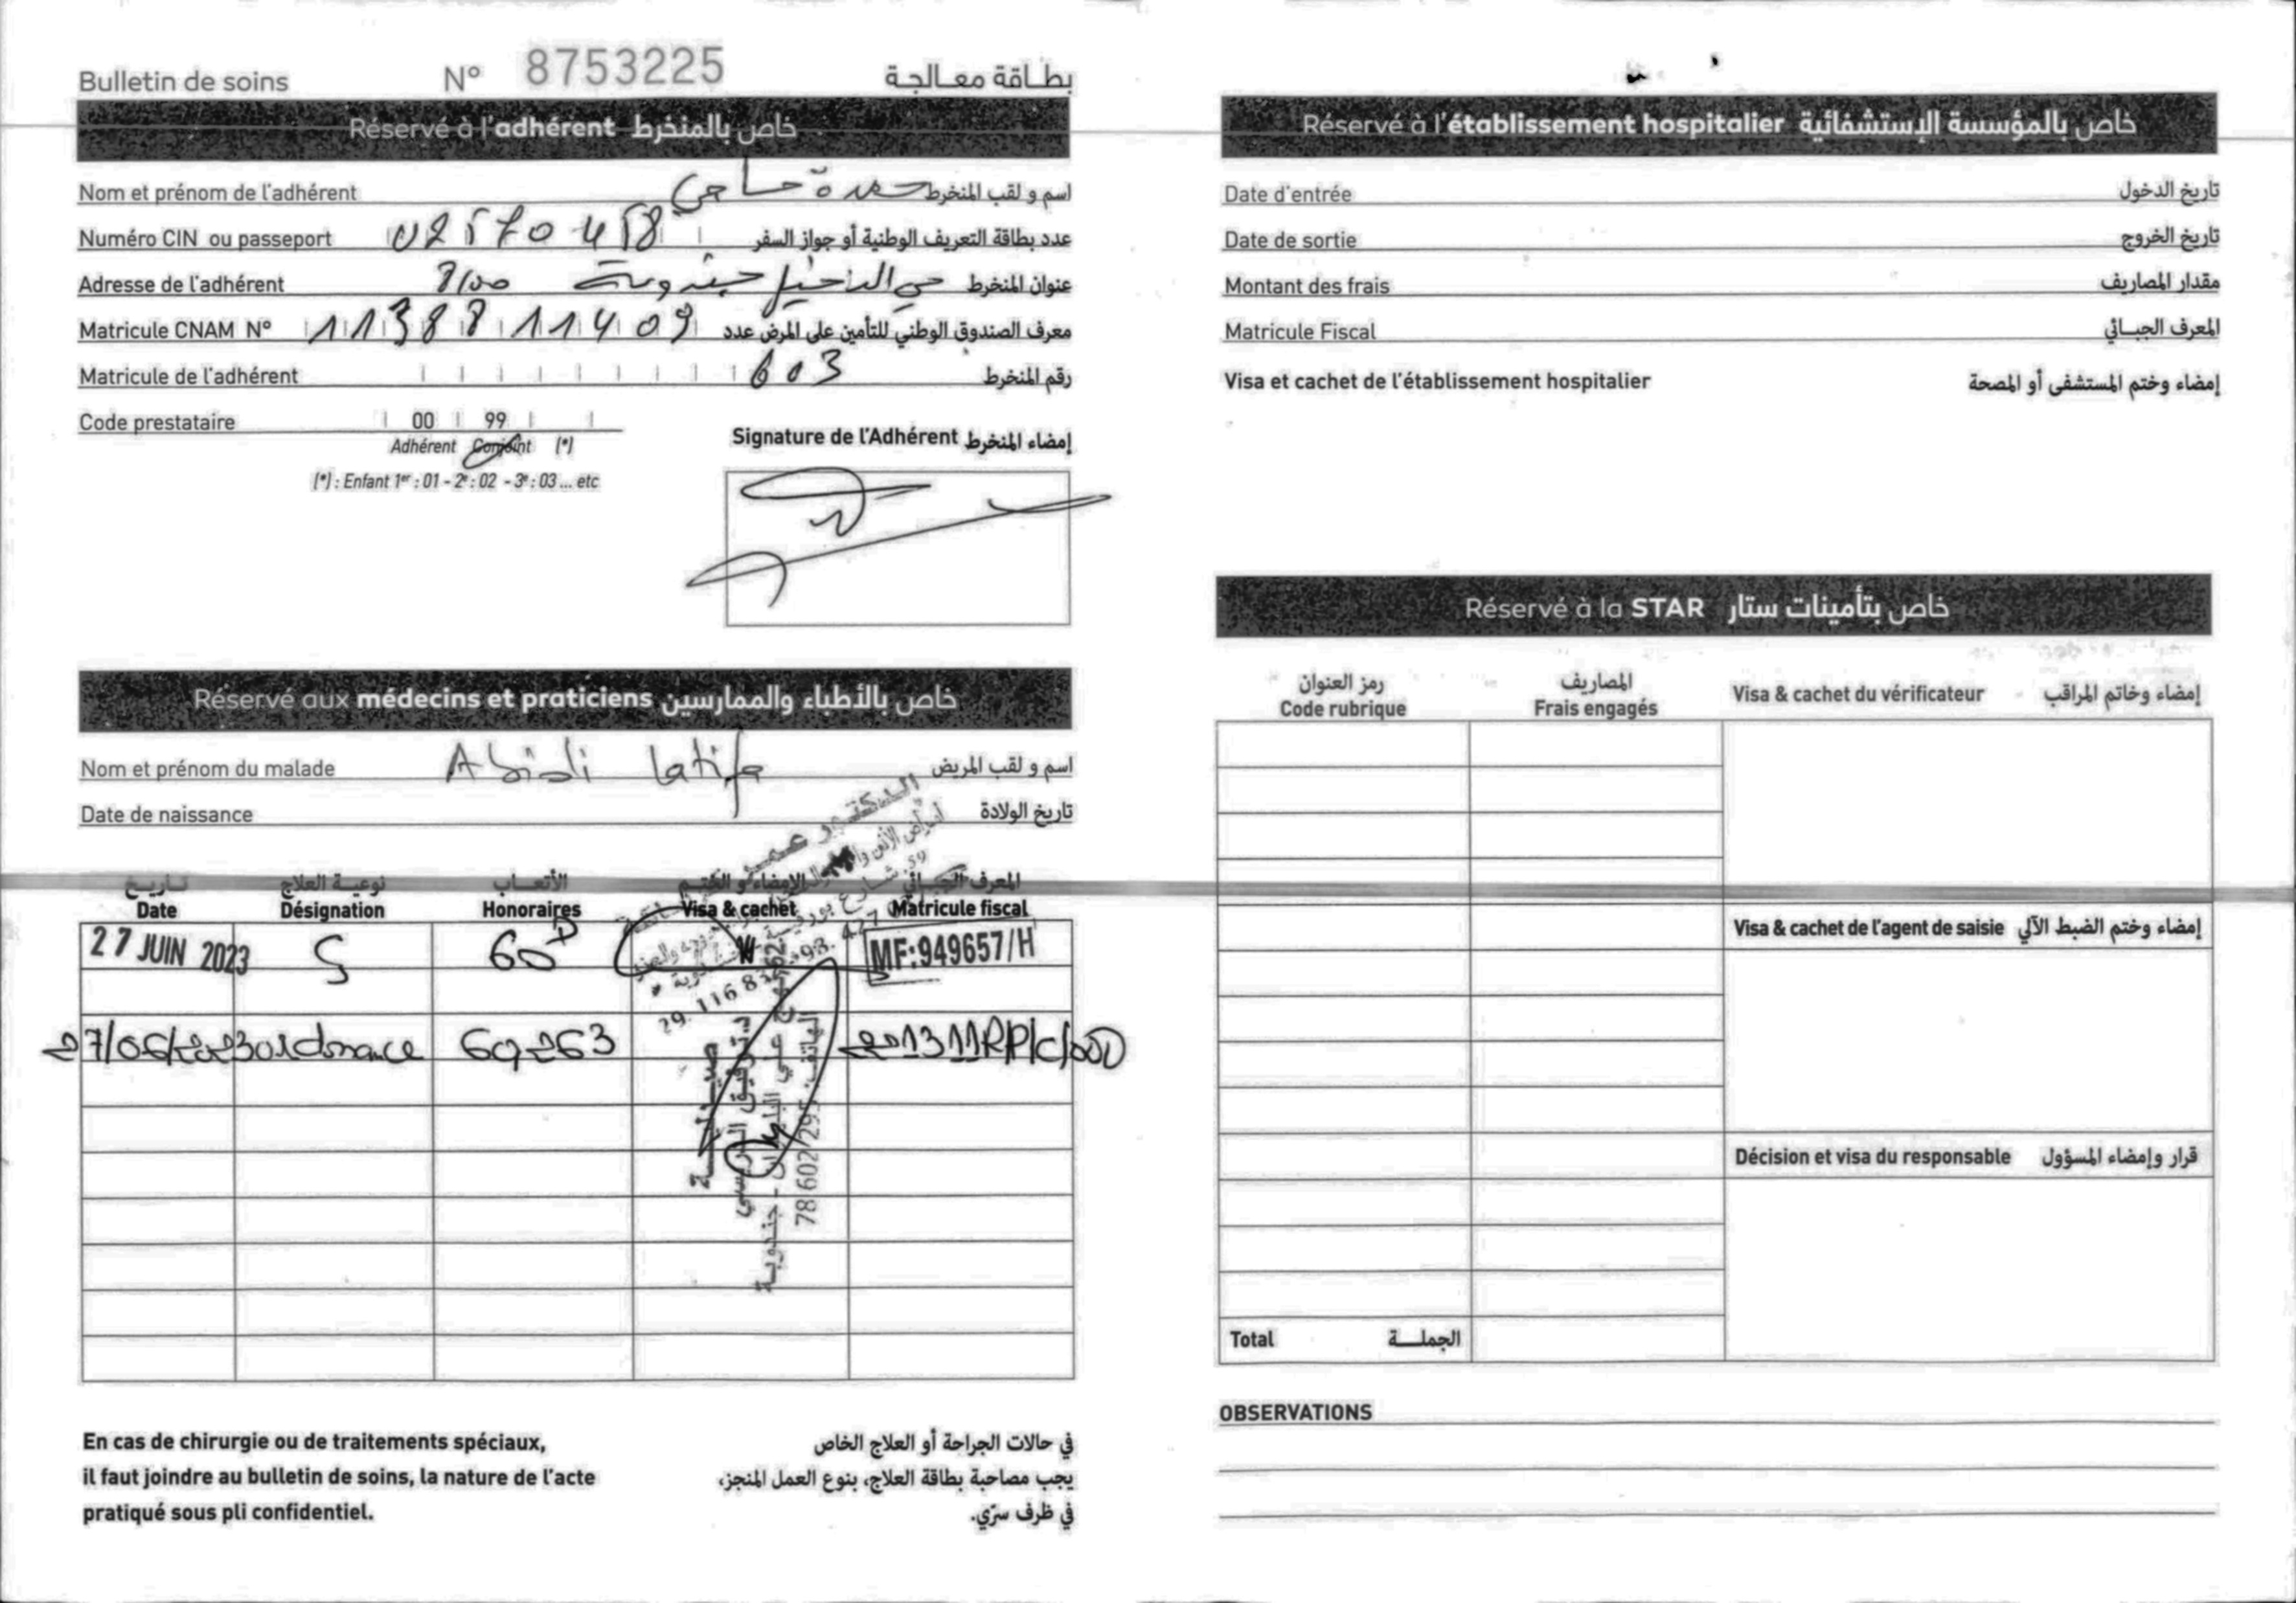 Bulletin de soins N° 8753225 بطاقة معالجة
Réservé à l'adhérent خاص بالمنخرط
Nom et prénom de l'adhérent حاجي اسم و لقب المنخرط
Numéro CIN ou passeport 02570458 عدد بطاقة التعريف الوطنية أو جواز السفر
Adresse de l'adhérent 8100 حي جندوبة عنوان المنخرط
Matricule CNAM N° 1138811409 معرف الصندوق الوطني للتأمين على المرض عدد
Matricule de l'adhérent 603 رقم المنخرط
Code prestataire 00 99
Adhérent Conjoint (*)
(*) : Enfant 1er : 01 - 2e : 02 - 3e : 03 ... etc
Signature de l'Adhérent إمضاء المنخرط
Réservé aux médecins et praticiens خاص بالأطباء والممارسين
Nom et prénom du malade Abidi Latifa اسم و لقب المريض
Date de naissance تاريخ الولادة
الدكتور
تاريخ نوعية العلاج الأتعاب الإمضاء و الختم المعرف الجبائي
Date Désignation Honoraires Visa & cachet Matricule fiscal
27 JUIN 2023 S 60D MF:949657/H
27/06/2023 ordonnance 69263
صيدلية
توفيق
جندوبة
78 602 295
En cas de chirurgie ou de traitements spéciaux,
il faut joindre au bulletin de soins, la nature de l'acte
pratiqué sous pli confidentiel.
في حالات الجراحة أو العلاج الخاص
يجب مصاحبة بطاقة العلاج، بنوع العمل المنجز،
في ظرف سرّي.
Réservé à l'établissement hospitalier خاص بالمؤسسة الإستشفائية
Date d'entrée تاريخ الدخول
Date de sortie تاريخ الخروج
Montant des frais مقدار المصاريف
Matricule Fiscal المعرف الجبائي
Visa et cachet de l'établissement hospitalier إمضاء وختم المستشفى أو المصحة
Réservé à la STAR خاص بتأمينات ستار
رمز العنوان المصاريف
Code rubrique Frais engagés Visa & cachet du vérificateur إمضاء وخاتم المراقب
Visa & cachet de l'agent de saisie إمضاء وختم الضبط الآلي
Décision et visa du responsable قرار وإمضاء المسؤول
Total الجملة
OBSERVATIONS